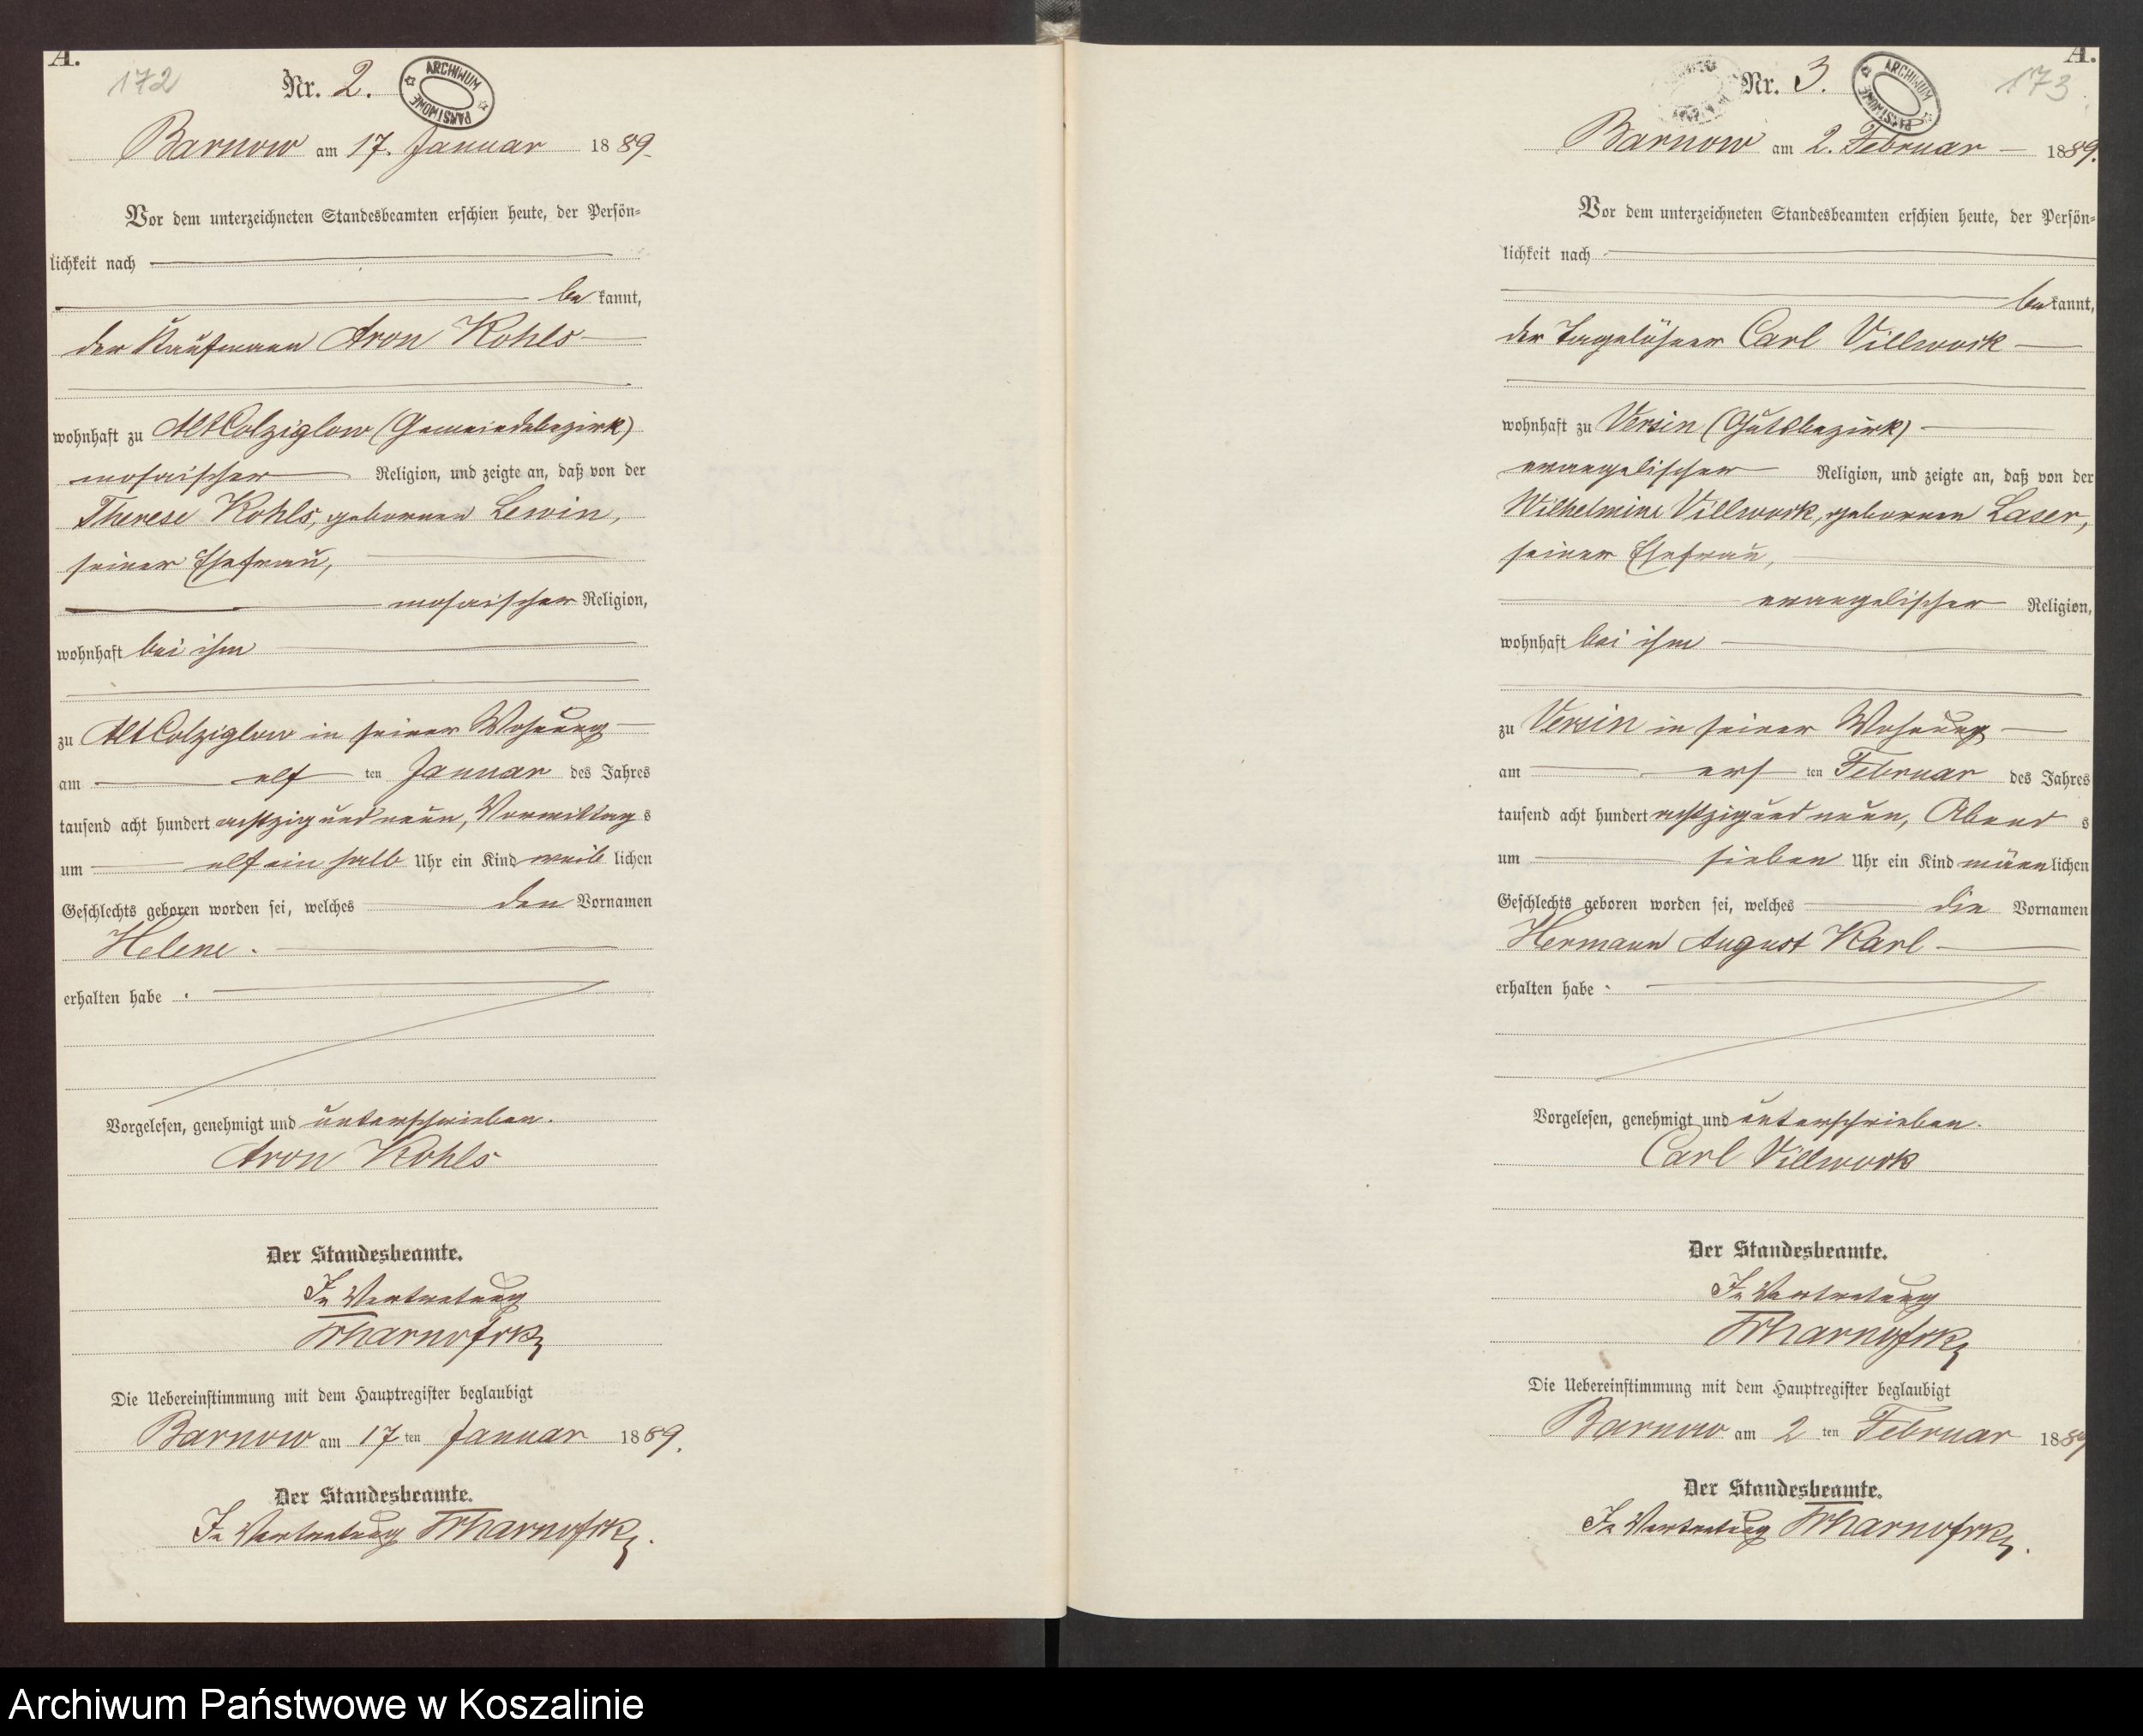 A.
172
Nr. 2.
ARCHIWUM PAŃSTWOWE
Barnow am 17. Januar 1889.
Vor dem unterzeichneten Standesbeamten erschien heute, der Persön=
lichkeit nach
bekannt,
der Kaufmann Aron Kohls
wohnhaft zu Alt Colziglow (Gemeindebezirk)
mosaischer Religion, und zeigte an, daß von der
Therese Kohls, geborenen Lewin,
seiner Ehefrau,
mosaischer Religion,
wohnhaft bei ihm
zu Alt Colziglow in seiner Wohnung
am elf ten Januar des Jahres
tausend acht hundert achtzig und neun, Vormittags
um elf ein halb Uhr ein Kind weiblichen
Geschlechts geboren worden sei, welches den Vornamen
Helene.
erhalten habe.
Vorgelesen, genehmigt und unterschrieben.
Aron Kohls
Der Standesbeamte.
In Vertretung
Die Uebereinstimmung mit dem Hauptregister beglaubigt
Barnow am 17 ten Januar 1889.
Der Standesbeamte.
In Vertretung
A.
173
Nr. 3.
ARCHIWUM PAŃSTWOWE
Barnow am 2. Februar 1889.
Vor dem unterzeichneten Standesbeamten erschien heute, der Persön=
lichkeit nach
bekannt,
der Tagelöhner Carl Villwock
wohnhaft zu Versin (Gutsbezirk)
evangelischer Religion, und zeigte an, daß von der
Wilhelmine Villwock, geborenen Laser,
seiner Ehefrau,
evangelischer Religion,
wohnhaft bei ihm
zu Versin in seiner Wohnung
am ersten Februar des Jahres
tausend acht hundert achtzig und neun, Abends
um sieben Uhr ein Kind männlichen
Geschlechts geboren worden sei, welches die Vornamen
Hermann August Karl
erhalten habe.
Vorgelesen, genehmigt und unterschrieben.
Carl Villwock
Der Standesbeamte.
In Vertretung
Die Uebereinstimmung mit dem Hauptregister beglaubigt
Barnow am 2 ten Februar 1889
Der Standesbeamte.
In Vertretung
Archiwum Państwowe w Koszalinie